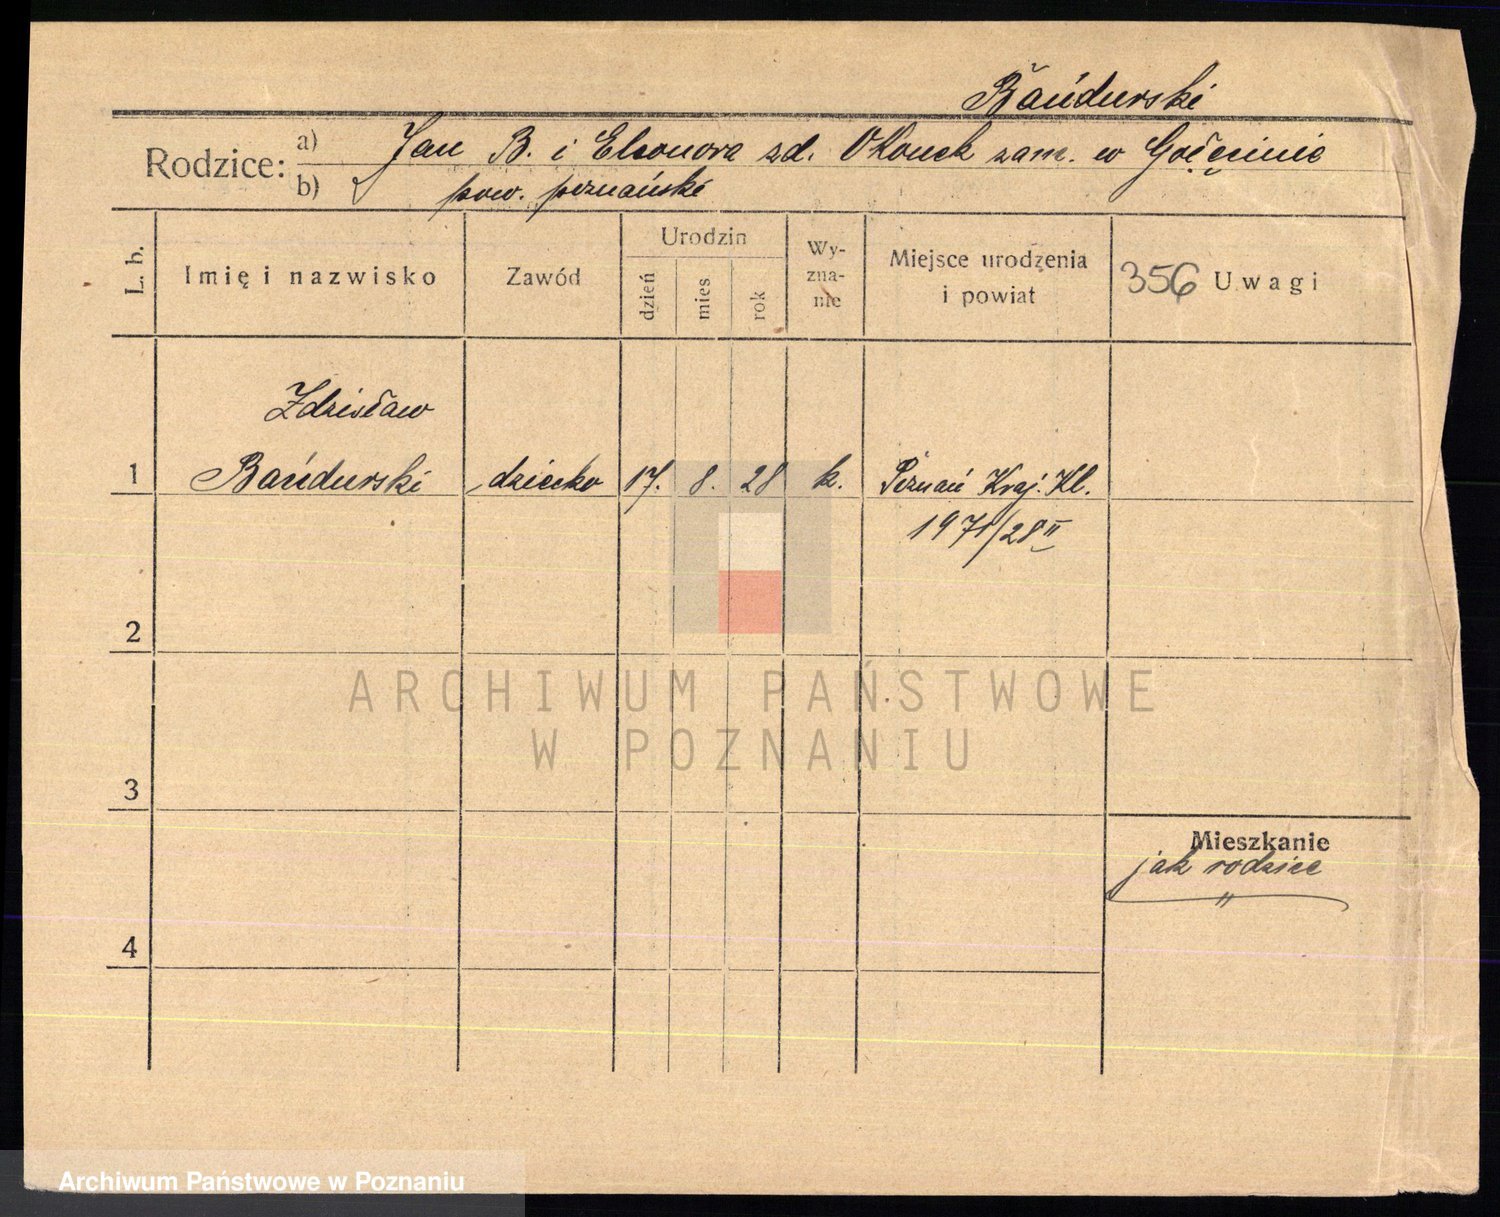 Bańdurski
Rodzice: a) Jan B. i Eleonora zd. Okonek zam. w Gołęcinie
b) pow. poznański
L. b.
Imię i nazwisko
Zawód
Urodzin
dzień
mies
rok
Wy-
zna-
nie
Miejsce urodzenia
i powiat
356 Uwagi
Zdzisław
1 Bańdurski dziecko 17. 8. 28 k. Poznań Kraj. Kl.
1971/28 II
2
ARCHIWUM PAŃSTWOWE
W POZNANIU
3
Mieszkanie
jak rodzice
4
Archiwum Państwowe w Poznaniu